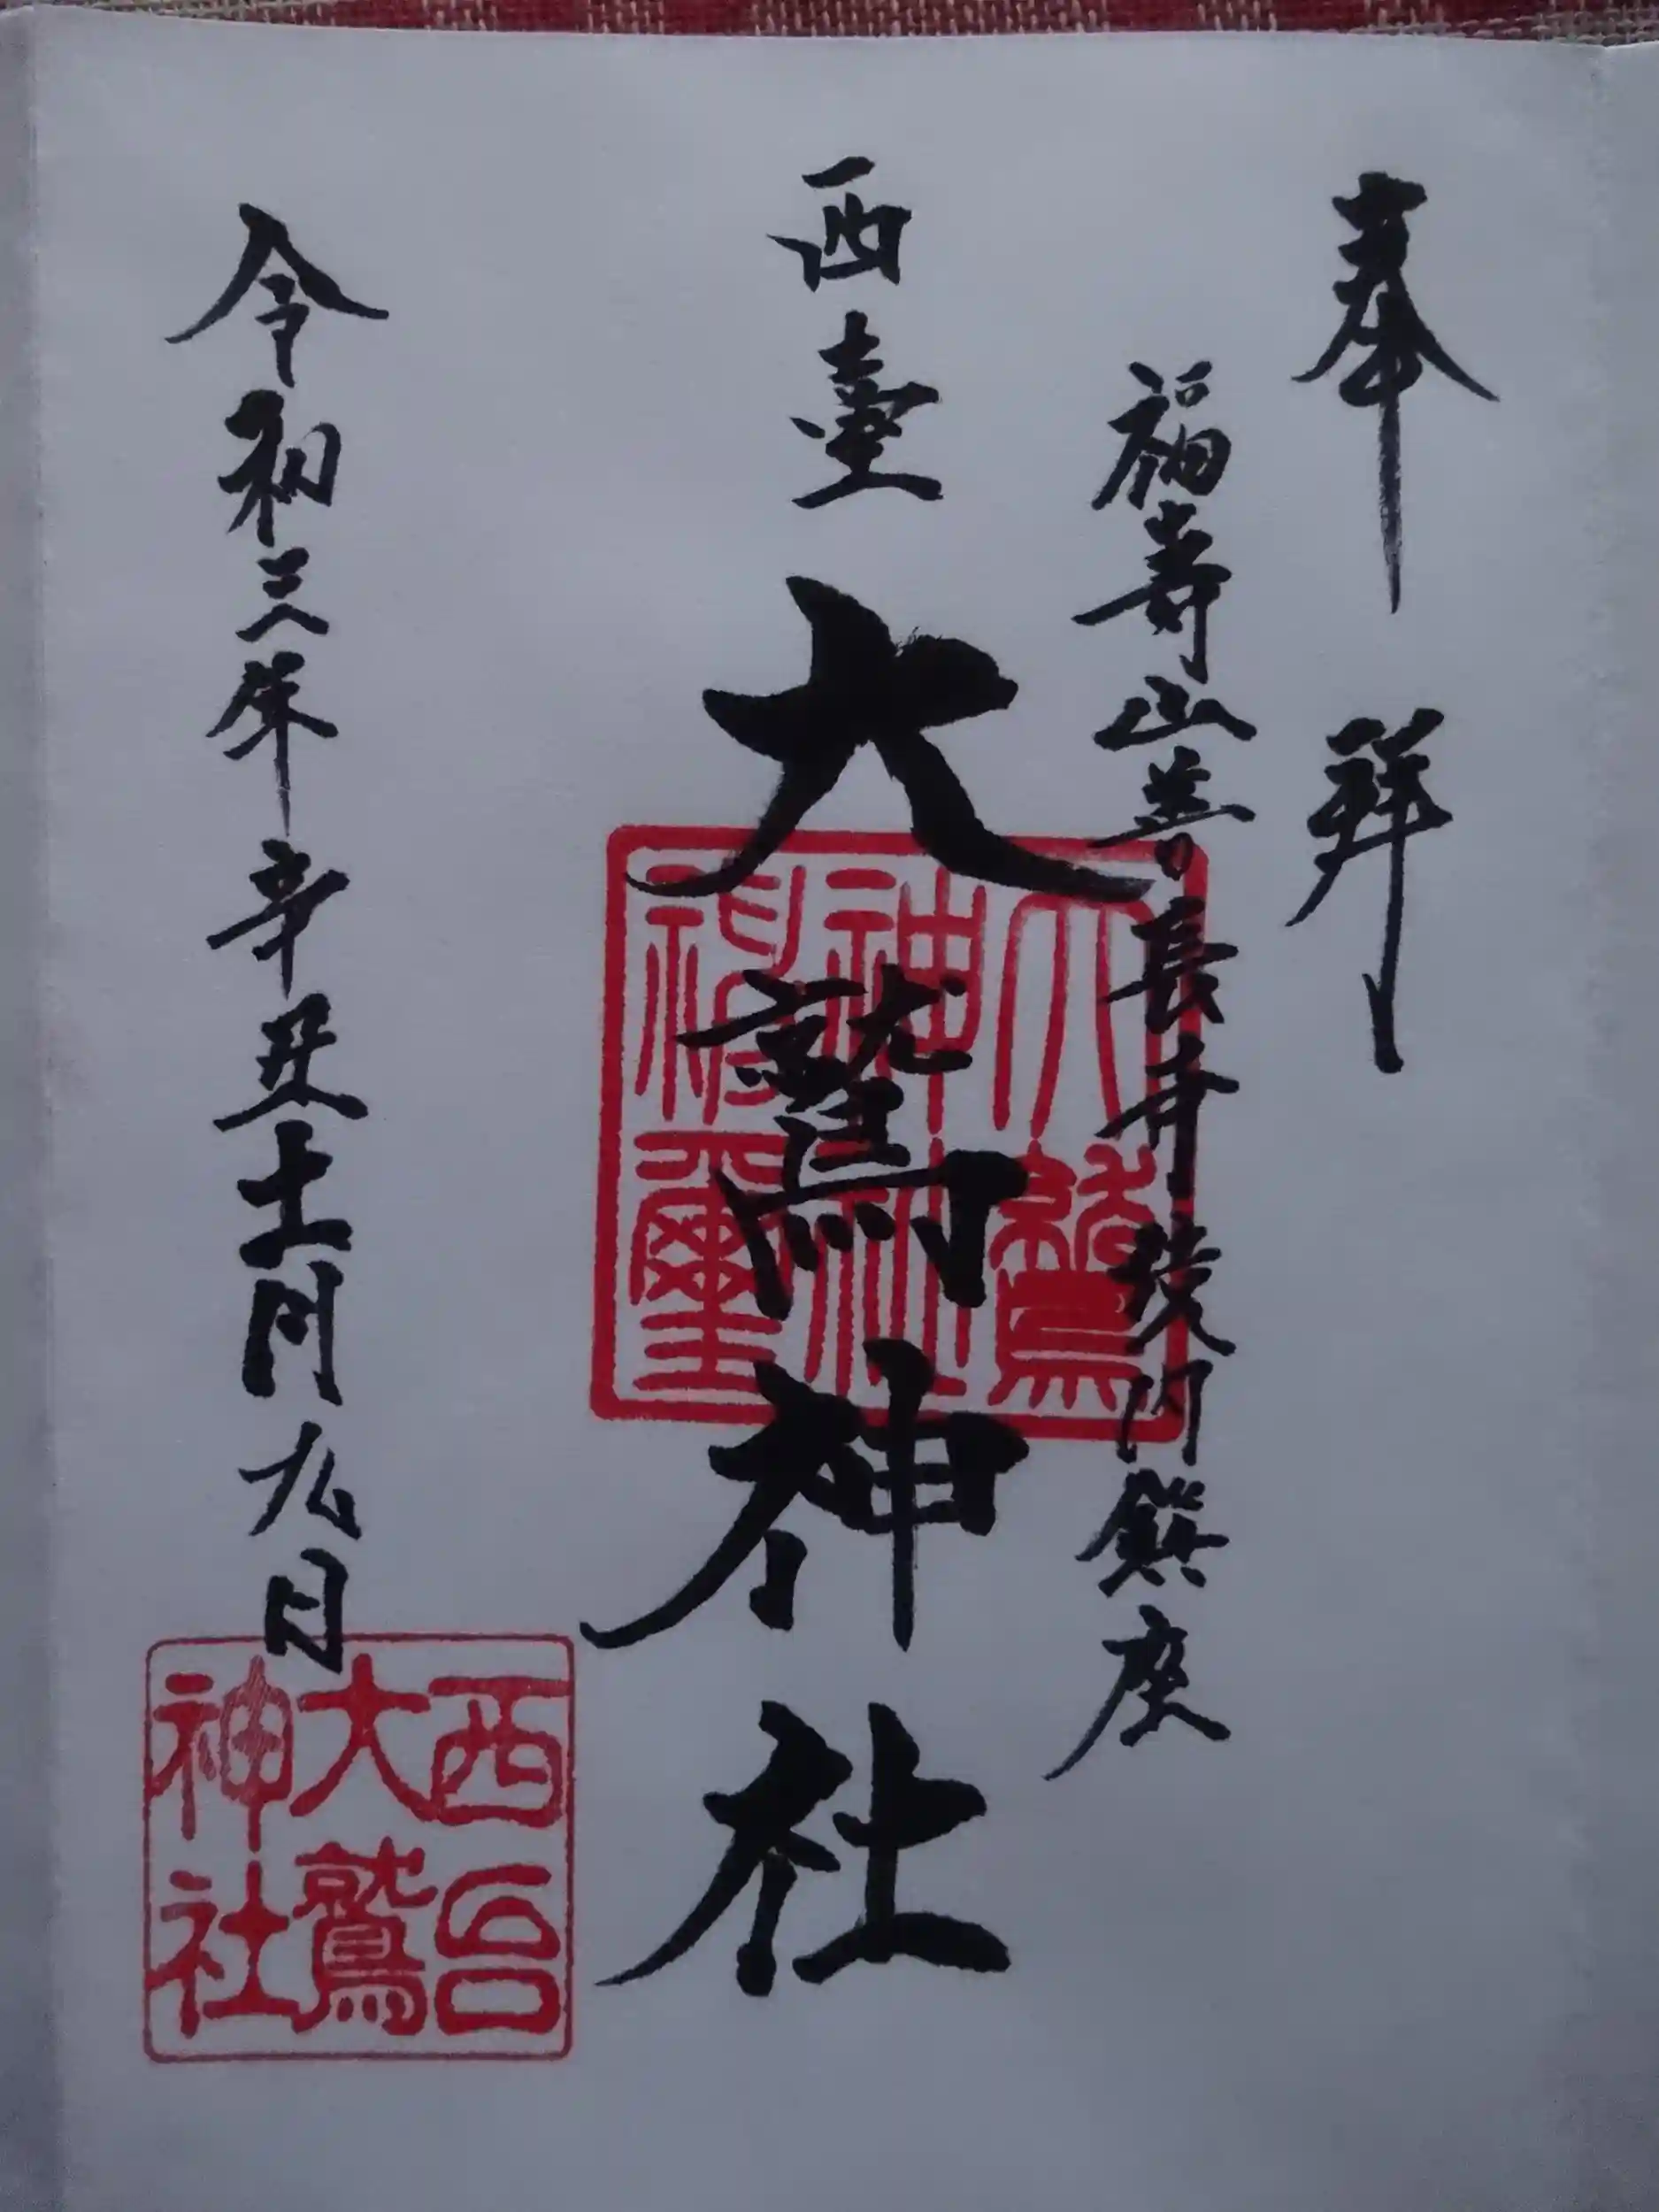 奉拝
福寿山善長寺境内鎮座
西臺 大鷲神社
令和三年辛丑十一月九日
大鷲
神社
璽
西台
大鷲
神社